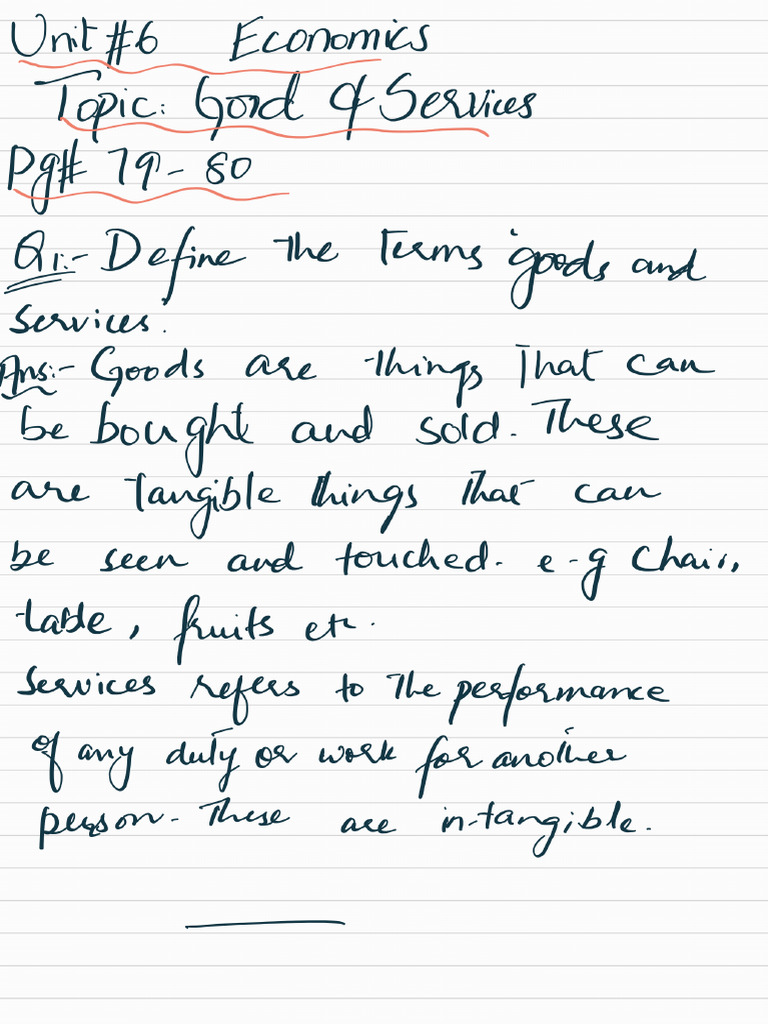 Unit #6 Economics
Topic: Good & Services
Pg# 79 - 80
Q1:- Define the terms 'goods and
services.
Ans:- Goods are things that can
be bought and sold. These
are tangible things that can
be seen and touched. e-g Chair,
table, fruits etc.
Services refers to the performance
of any duty or work for another
person. These are in-tangible.